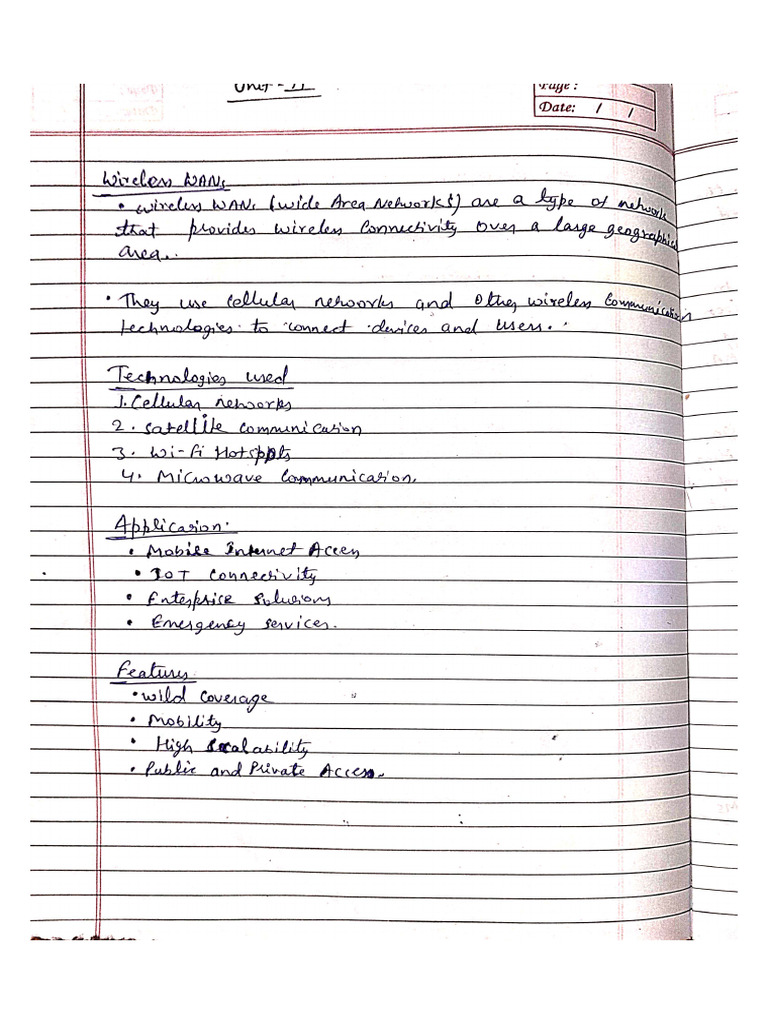 Unit - II
Page :
Date: / /
Wireless WANs
• Wireless WANs (Wide Area Networks) are a type of network
that provides wireless Connectivity over a large geographical
area..
• They use cellular networks and Other wireless Communication
technologies to connect devices and users..
Technologies used
1. Cellular networks
2. Satellite communication
3. Wi-Fi Hotspots
4. Microwave Communication.
Application:
• Mobile Internet Access
• IoT connectivity
• Enterprise Solutions
• Emergency services.
Features
• Wild Coverage
• Mobility
• High Scalability
• Public and Private Access.